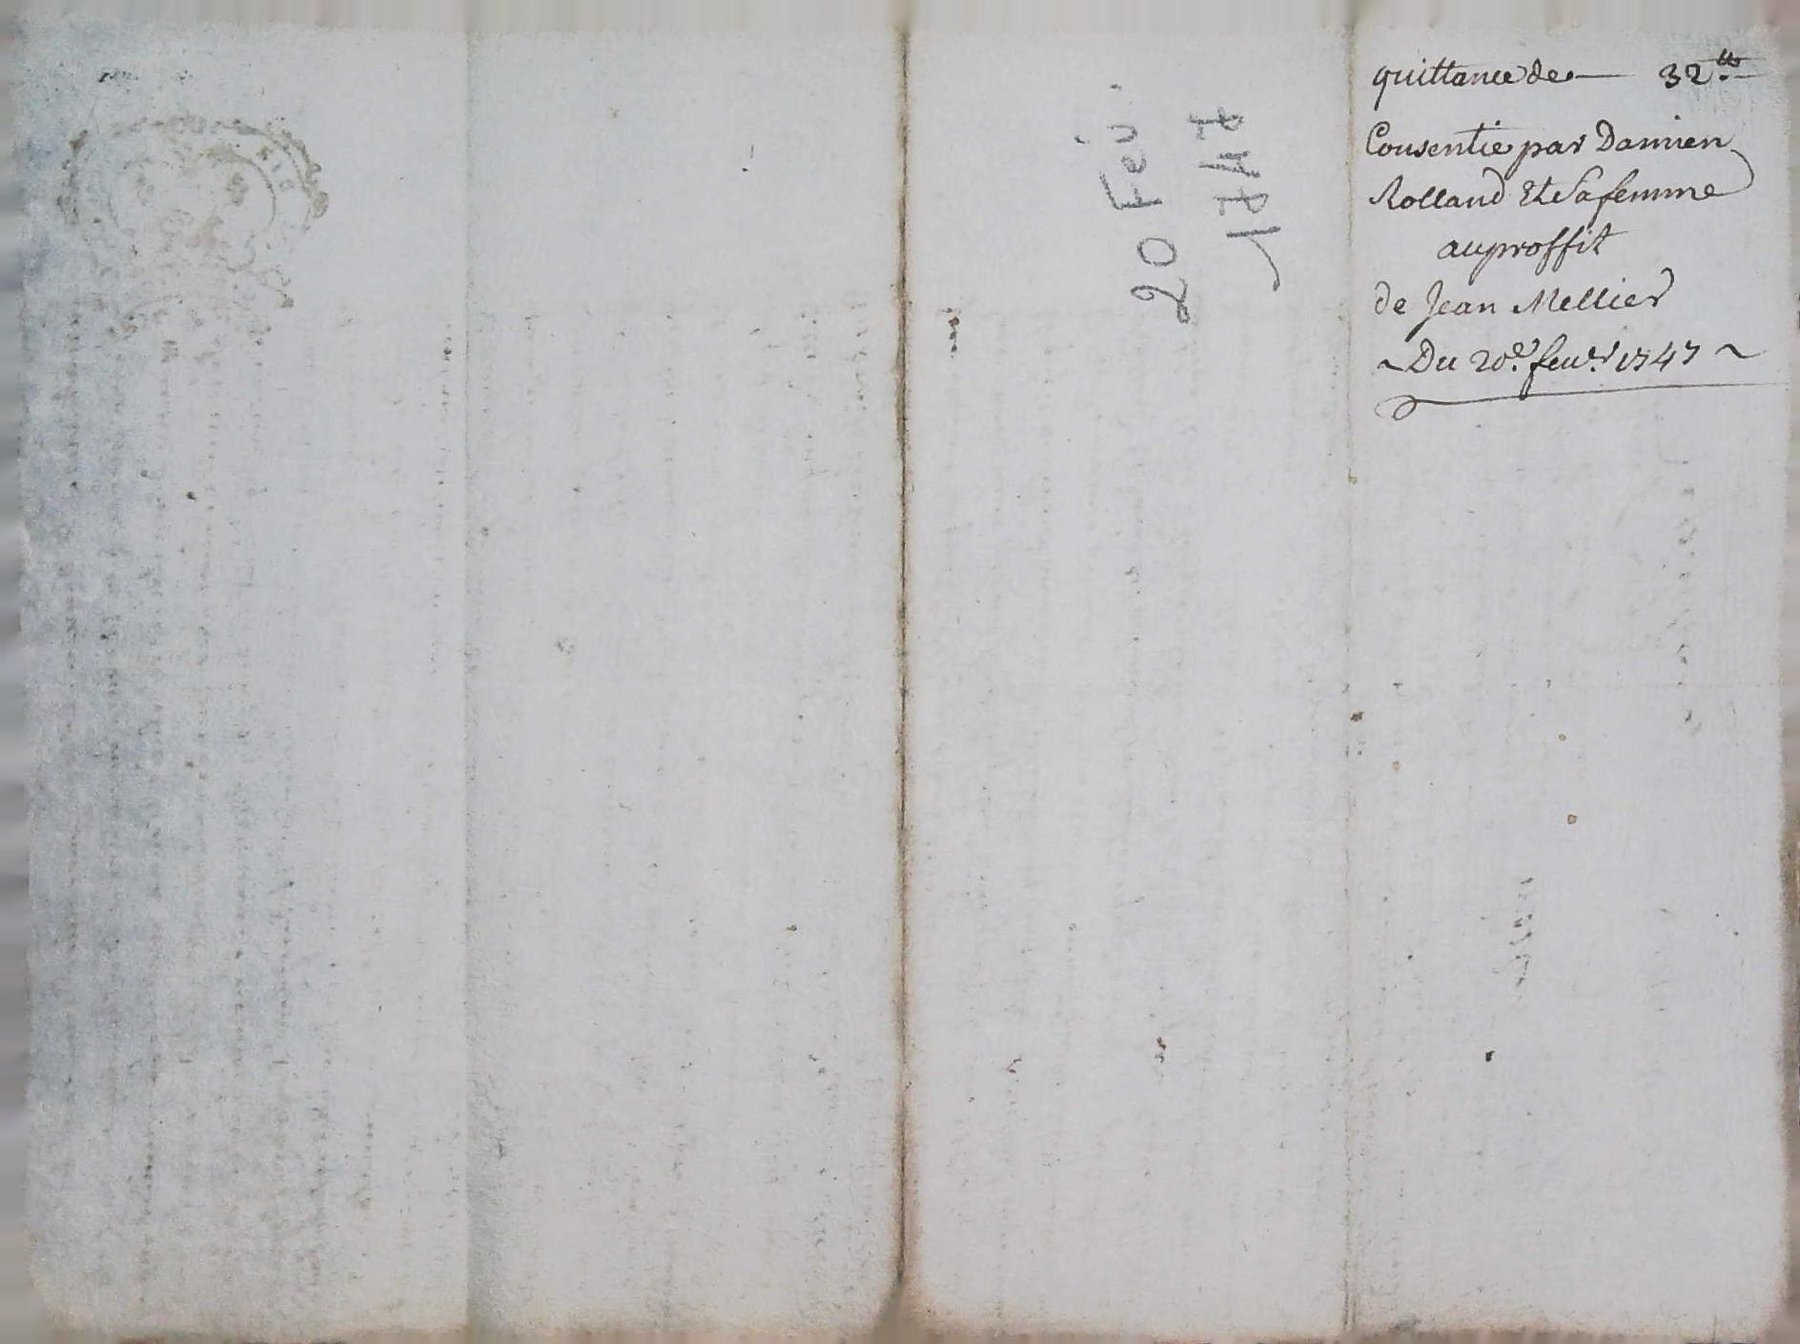 quittance de — 32tt
Consentie par Damien
Rolland Et Sa femme
au proffit
de Jean Mellier
~ Du 20e. feur. 1747 ~
20 Fev.
1747